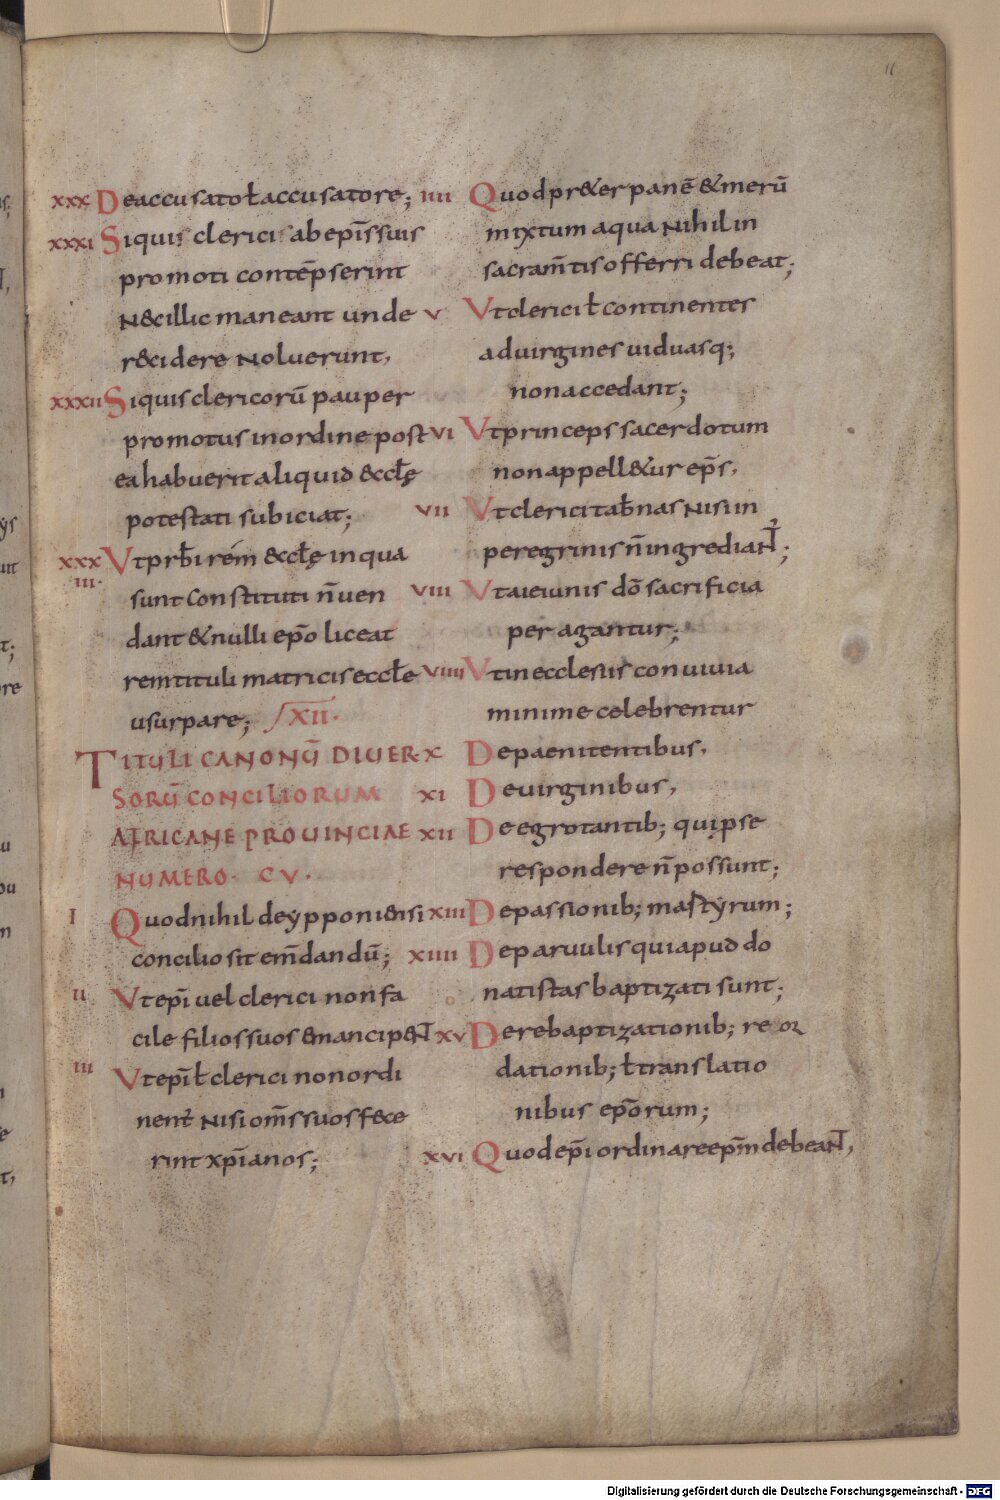 11
xxx Deaccusatoł accusatore;
xxxi Siquis clerici ab epis̄ suis
promoti contēpserint
N&illic maneant unde
r&cidere Noluerunt,
xxxii Siquis clericorū pauper
promotus inordine post
ea habuerit aliquid &cclę
potestati subiciat;
xxx Vtprb̄i rem &cclę inqua
iii·
sunt constituti n̄uen
dant &nulli ep̄o liceat
remtituli matricis eccłe
usurpare; XII·
TITULI CANONŪ DIUER
SORŪ CONCILIORUM
AFRICANE PROUINCIAE
NUMERO· CV·
I Quodnihil deypponi&nsi
concilio sit em̄dandū;
ii Vtepi uel clerici nonfa
cile filios suos &mancip&NT
iii Vtepīł clerici nonordi
nent Nisi om̄s suos fece
rint xp̄ianos;
iiii Quod pr&er panē &merū
mixtum aqua Nihil in
sacram̄tis offerri debeat;
v Vtclericił continentes
aduirgines uiduasq;
non accedant;
vi Vtprinceps sacerdotum
non appell&ur ep̄s,
vii Vtclerici tab̄nas Nisi in
peregrinis n̄ingrediaNT;
viii Vtaieiunis dō sacrificia
per agantur;
viiii Vtinecclesiis conuiuia
minime celebrentur
x Depaenitentibus,
xi Deuirginibus,
xii Deegrotantib; qui pse
respondere n̄possunt;
xiii Depassionib; martyrum;
xiiii Deparuulis quiapud do
natistas baptizati sunt;
xv Derebaptizationib; re or
dationib; ł translatio
nibus ep̄orum;
xvi Quodepi ordinare epm̄ debeaNT,
Digitalisierung gefördert durch die Deutsche Forschungsgemeinschaft - DFG